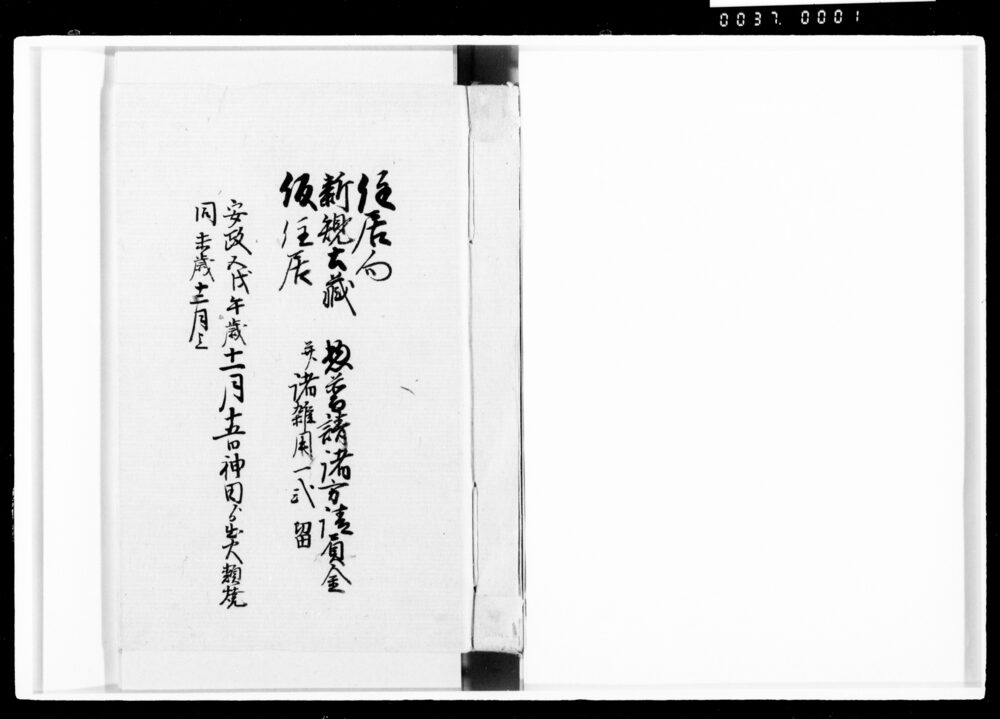 0037. 0001
住居向
新規土蔵 惣普請諸方請負金
仮住居 并諸雑用一式留
安政五戊午歳十一月十五日神田ゟ出火類焼
同未歳十二月迄